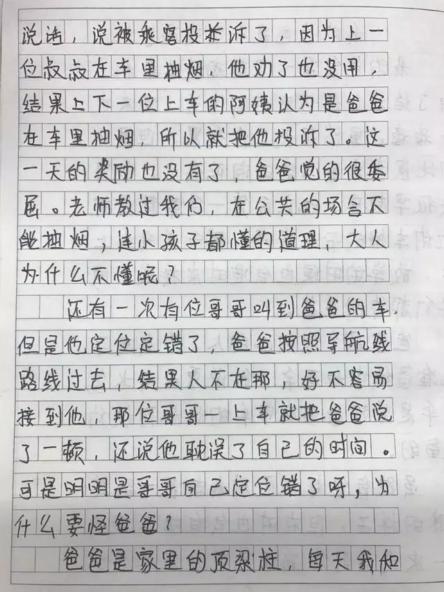 说话，说被乘客投诉了，因为上一
位叔叔在车里抽烟，他劝了也没用，
结果上下一位上车的阿姨认为是爸爸
在车里抽烟，所以就把他投诉了。这
一天的奖励也没有了，爸爸觉的很委
屈。老师教过我们，在公共的场合不
能抽烟，连小孩子都懂的道理，大人
为什么不懂呢？
还有一次有位哥哥叫到爸爸的车，
但是他定位定错了，爸爸按照导航线
路线过去，结果人不在那，好不容易
接到他，那位哥哥一上车就把爸爸说
了一顿，还说他耽误了自己的时间。
可是明明是哥哥自己定位错了呀，为
什么要怪爸爸？
爸爸是家里的顶梁柱，每天我和